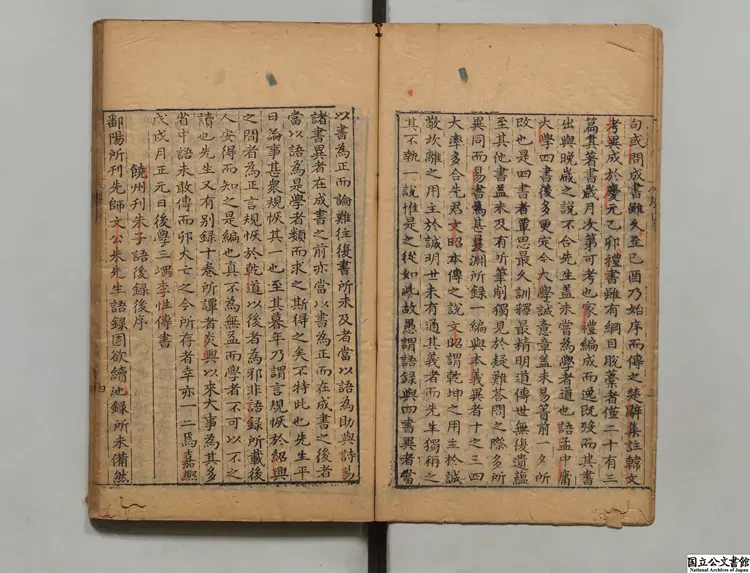 句或問成書雖久至己酉乃始序而傳之楚辭集註韓文
考異成於慶元乙卯禮書雖有綱目脫藁者僅二十有三
篇其著書歳月次第可考也家禮編成而逸既歿而其書
出與晚歳之說不合先生蓋未嘗為學者道也語孟中庸
大學四書後多更定今大學誠意章蓋未易簀前一夕所
改也是四書者覃思最久訓釋最精明道傳世無復遺蘊
至其他書蓋未及有所筆削獨見於疑難答問之際多所
異同而易書為甚㬊淵所録一編與本義異者十之三四
大率多合先君文昭本傳之說文昭謂乾坤之用主於誠
敬坎離之用主於誠明世未有通其義者而先生獨稱之
其不執一說惟是之從如此故愚謂語録與四書異者當
以書為正而論難往復書所未及者當以語為助與詩易
諸書異者在成書之前亦當以書為正而在成書之後者
當以語為是學者類而求之斯得之矣不特此也先生平
日論事甚衆規恢其一也至其暮年乃謂言規恢於紹興
之間者為正言規恢於乾道以後者為邪非語録所載後
人安得而知之是編也真不為無益而學者不可以不之
讀也先生又有別録十卷所譚者炎興以來大事為其多
省中語未敢傳而卯火亡之今所存者幸亦一二焉嘉熙
戊戌月正元日後學三嵎李性傳書
饒州刊朱子語後録後序
鄱陽所刊先師文公朱先生語録固欲續池録所未備然
国立公文書館
National Archives of Japan